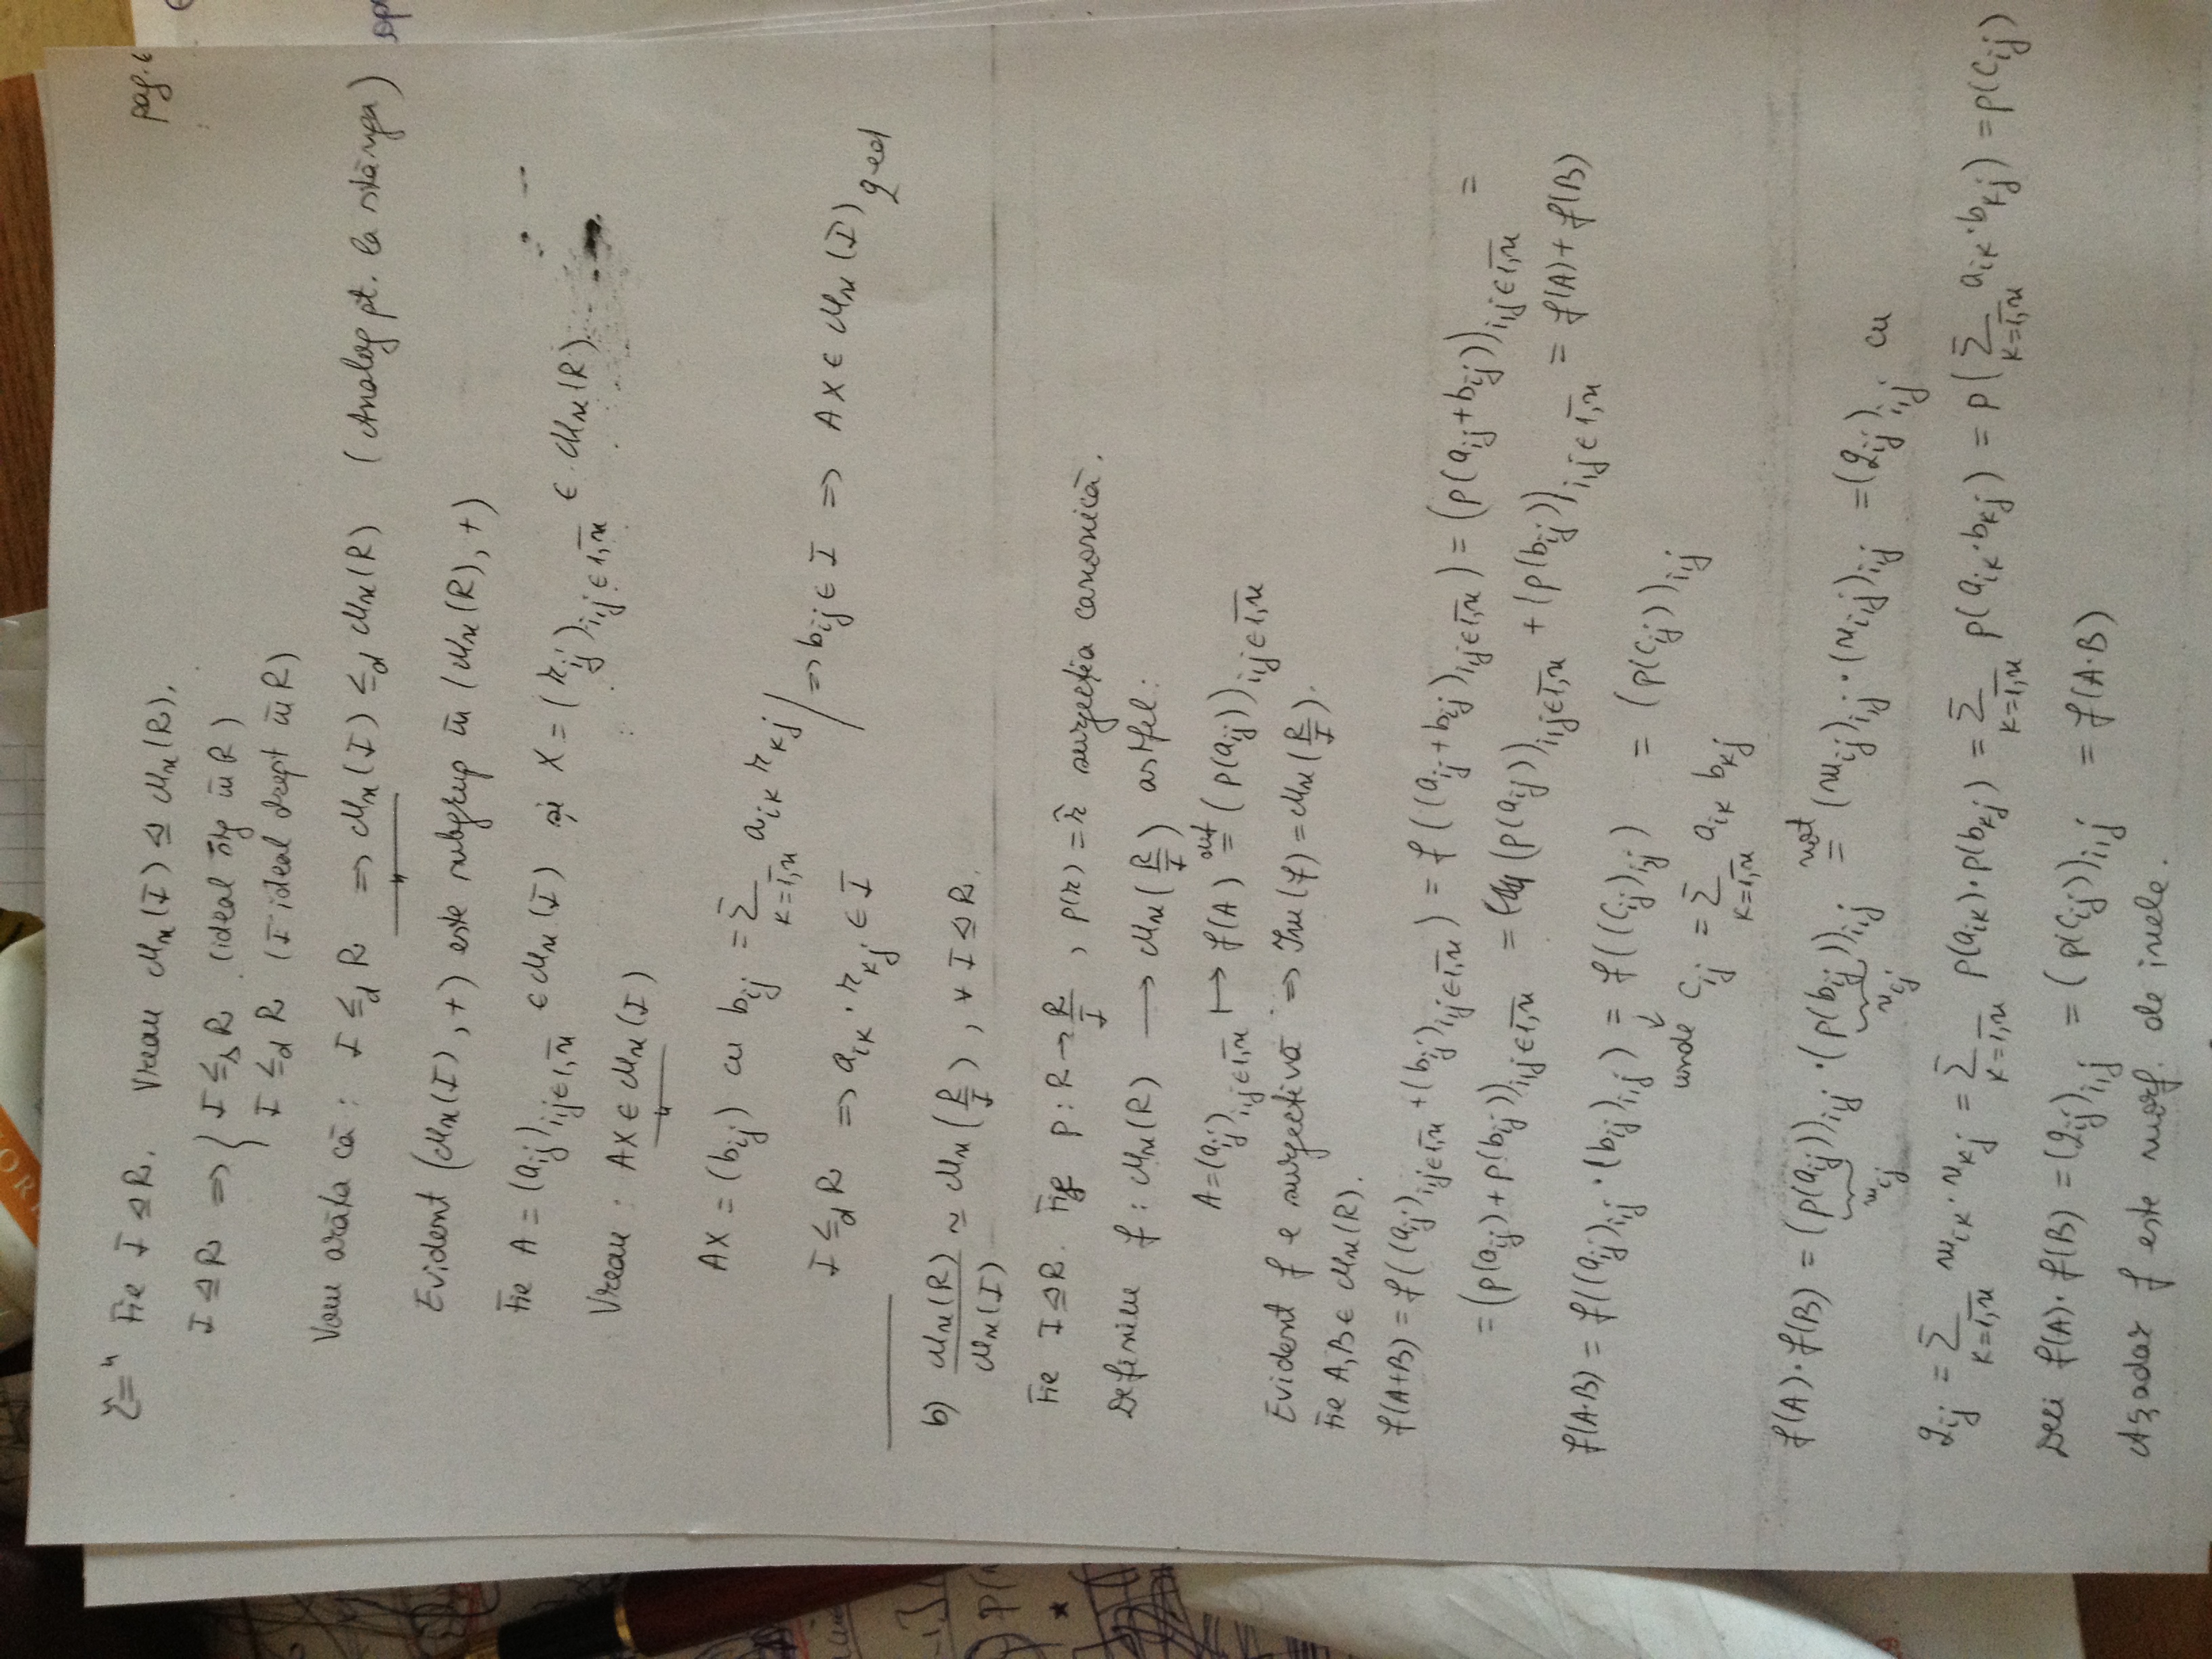 "⇐" Fie I ⊴ R. Vreau Mn(I) ⊴ Mn(R).
pag. 6
I ⊴ R ⇒ { I ≤s R (ideal stg în R)
I ≤d R (I ideal drept în R)
Vom arăta că: I ≤d R ⇒ Mn(I) ≤d Mn(R) (Analog pt. la stânga)
Evident (Mn(I), +) este subgrup în (Mn(R), +)
Fie A = (aij)i,j∈1,n ∈ Mn(I) și X = (rij)i,j∈1,n ∈ Mn(R).
Vreau: AX ∈ Mn(I)
AX = (bij) cu bij = Σk=1,n aik rkj
I ≤d R ⇒ aik · rkj ∈ I | ⇒ bij ∈ I ⇒ AX ∈ Mn(I) qed
b) Mn(R)/Mn(I) ≃ Mn(R/I), ∀ I ⊴ R.
Fie I ⊴ R. Fie p: R → R/I, p(r) = r̂ surjecția canonică.
Definim f: Mn(R) → Mn(R/I) astfel:
A = (aij)i,j∈1,n ↦ f(A) def= (p(aij))i,j∈1,n
Evident f e surjectivă ⇒ Im(f) = Mn(R/I).
Fie A, B ∈ Mn(R).
f(A+B) = f((aij)i,j∈1,n + (bij)i,j∈1,n) = f((aij+bij)i,j∈1,n) = (p(aij+bij))i,j∈1,n =
= (p(aij)+p(bij))i,j∈1,n = (p(aij))i,j∈1,n + (p(bij))i,j∈1,n = f(A)+f(B)
f(A·B) = f((aij)i,j · (bij)i,j) = f((cij)i,j) = (p(cij))i,j
unde cij = Σk=1,n aik bkj
f(A)·f(B) = (p(aij))i,j · (p(bij))i,j not= (mij)i,j · (nij)i,j = (qij)i,j cu
mij nij
qij = Σk=1,n mik · nkj = Σk=1,n p(aik)·p(bkj) = Σk=1,n p(aik·bkj) = p(Σk=1,n aik·bkj) = p(cij)
Deci f(A)·f(B) = (qij)i,j = (p(cij))i,j = f(A·B)
Așadar f este morf. de inele.